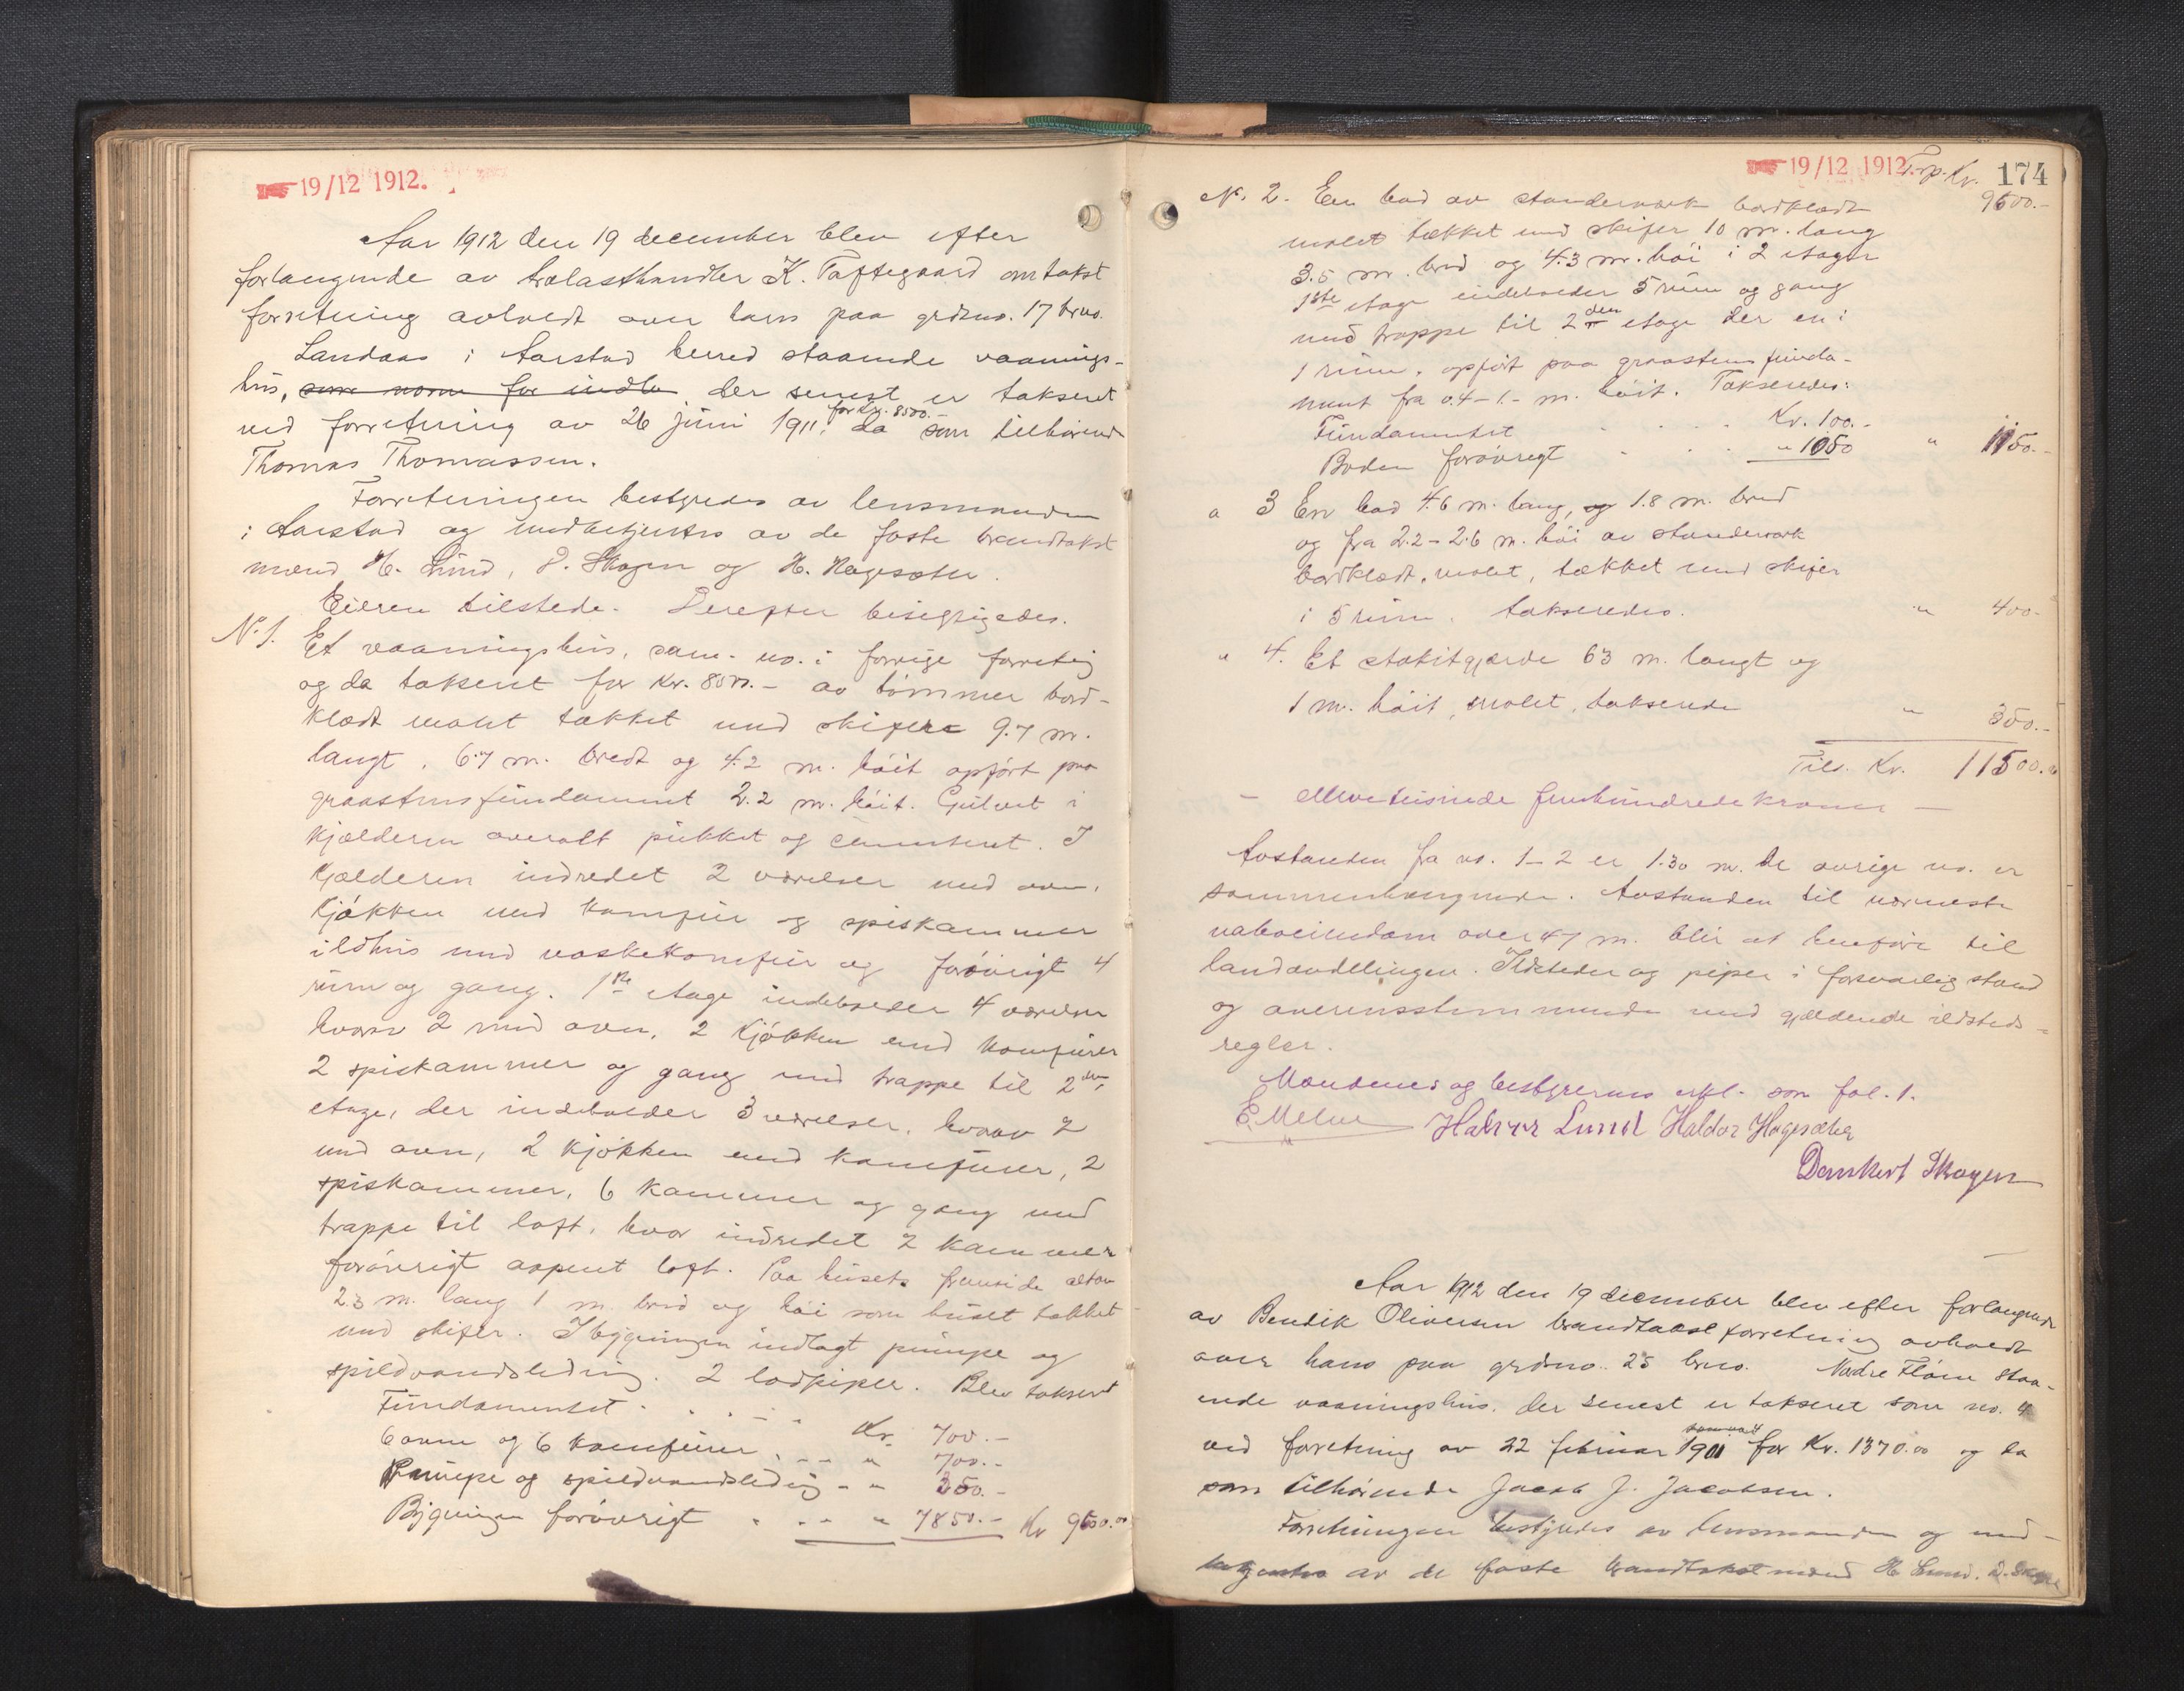 19/12 1912.
Aar 1912 den 19 december blev efter
forlangende av trælasthandler K. Toftegaard omtakst
forretning avholdt over hans paa grdsno. 17 brno.
Landaas i Aarstad herred staaende vaanings-
hus, som norm for indtn der senest er takseret
for Kr. 8500.-
ved forretning av 26 juni 1911, da som tilhørende
Thomas Thomassen.
Forretningen bestyredes av lensmanden
i Aarstad og medbetjentes av de faste brandtakst
mænd H. Lund, D. Skagen og H. Hagesæter.
Eieren tilstede. Derefter besigtigedes.
N. 1. Et vaaningshus, sam. no. i forrige forretn̄ig
og da takseret for Kr. 8000.- av tømmer bord-
klædt malet tækket med skifer 9.7 m.
langt, 6.7 m. bredt og 4.2 m. høit opført paa
graastensfundament 2.2 m. høit. Gulvet i
kjælderen overalt pukket og cementeret. I
kjælderen indredet 2 værelser med ovn,
kjøkken med komfur og spiskammer
ildhus med vaskekomfur og forøvrigt 4
rum og gang. 1ste etage indeholder 4 værelser
hvorav 2 med ovn, 2 kjøkken med komfurer
2 spiskammer og gang med trappe til 2den
etage, der indeholder 3 værelser, hvorav 2
med ovn, 2 kjøkken med komfurer, 2
spiskammer, 6 kammer og gang med
trappe til loft, hvor indredet 2 kammer
forøvrigt aapent loft. Paa husets fremside altan
2.3 m. lang 1 m. bred og høi som huset tækket
med skifer. I bygningen indlagt pumpe og
spildvandsledning. 2 lodpiper. Blev takseret
Fundamentet Kr. 700.-
6 ovne og 6 komfurer " 700.-
Pumpe og spildvandsledn̄ig " 350.-
Bygningen forøvrigt " 7850.- Kr 9600.00
19/12 1912
Trp. Kr. 174
9600.-
N. 2. En bod av stenderverk bordklædt
malet tækket med skifer 10 m. lang
3.5 m. bred og 4.3 m. høi i 2 etager
1ste etage indeholder 5 rum og gang
med trappe til 2den etage der er i
1 rum, opført paa graastens funda-
ment fra 0.4 - 1.- m. høit. Takseredes:
Fundamentet Kr. 100.-
Boden forøvrigt " 1050 " 1150.-
" 3 En bod 4.6 m. lang, og 1.8 m. bred
og fra 2.2 - 2.6 m. høi av stenderverk
bordklædt, malet, tækket med skifer
i 5 rum, takseredes. " 400.-
" 4. Et stakitgjærde 63 m. langt og
1 m. høit, malet, takserede " 350.-
Tils. Kr. 11500.00
- Elleve tusinde fem hundrede kroner -
Avstanden fra no. 1-2 er 1.30 m. De øvrige no. er
sammenhængende. Avstanden til nærmeste
naboeiendom over 47 m. blir at henføre til
landavdelingen. Ildsteder og piper i forsvarlig stand
og overensstemmende med gjældende ildsteds-
regler.
Mændenes og bestyrerens erkl. som fol. 1.
E. Melve Halvor Lund Haldor Hagesæter
Dankert Skagen
Aar 1912 den 19 december blev efter forlangende
av Bendik Oliversen brandtakst forretning avholdt
over hans paa grdsno. 25 brno. Nedre Fløien staa-
ende vaaningshus, der senest er takseret som no. 4
ved forretning av 22 februar 1901 for Kr. 1370.00 og da
som tilhørende Jacob J. Jacobsen.
Forretningen bestyredes av lensmanden og med-
betjentes av de faste brandtakstmænd H. Lund, D. Skagen